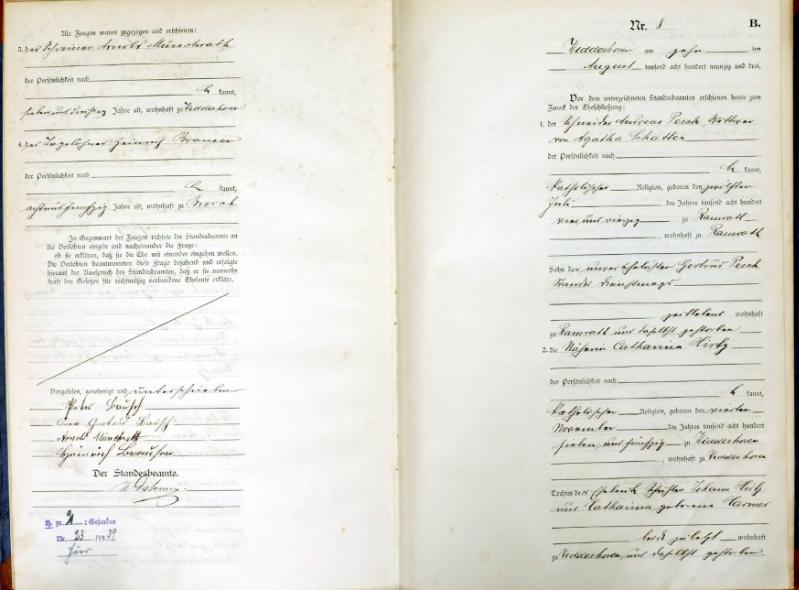 Als Zeugen waren zugezogen und erschienen:
3. der Schreiner Arnold Münchrath
der Persönlichkeit nach
kannt,
sieben und dreißig Jahre alt, wohnhaft zu Nidderhoven
4. der Tagelöhner Heinrich
der Persönlichkeit nach
kannt,
achtundfünfzig Jahre alt, wohnhaft zu
In Gegenwart der Zeugen richtete der Standesbeamte an
die Verlobten einzeln und nacheinander die Frage:
ob sie erklären, daß sie die Ehe mit einander eingehen wollen.
Die Verlobten beantworteten diese Frage bejahend und erfolgte
hierauf der Ausspruch des Standesbeamten, daß er sie nunmehr
kraft des Gesetzes für rechtmäßig verbundene Eheleute erkläre.
Vorgelesen, genehmigt und unterschrieben
Peter Bausch
Bausch
Arnold
Heinrich
Der Standesbeamte.
H. zu 2 : Gestorben
Nr. 23 1939
hier
Nr. 8
B.
am zehn ten
August tausend acht hundert neunzig und drei.
Vor dem unterzeichneten Standesbeamten erschienen heute zum
Zweck der Eheschließung:
1. der Schneider Andreas Pesch, Wittwer
von Agatha
der Persönlichkeit nach
kannt,
katholischer Religion, geboren den zwölften
Juli des Jahres tausend acht hundert
vier und vierzig zu Ramrath
, wohnhaft zu Ramrath
Sohn der unverehelichten Gertrud Pesch
Standes Dienstmagd
zeitlebens wohnhaft
zu Ramrath und daselbst gestorben
2. die Näherin Catharina Hirtz
der Persönlichkeit nach
kannt,
katholischer Religion, geboren den vierten
November des Jahres tausend acht hundert
sieben und fünfzig zu
, wohnhaft zu
Tochter der Eheleute Johann Hirtz
und Catharina geborene Harmes
beide zuletzt wohnhaft
zu und daselbst gestorben.